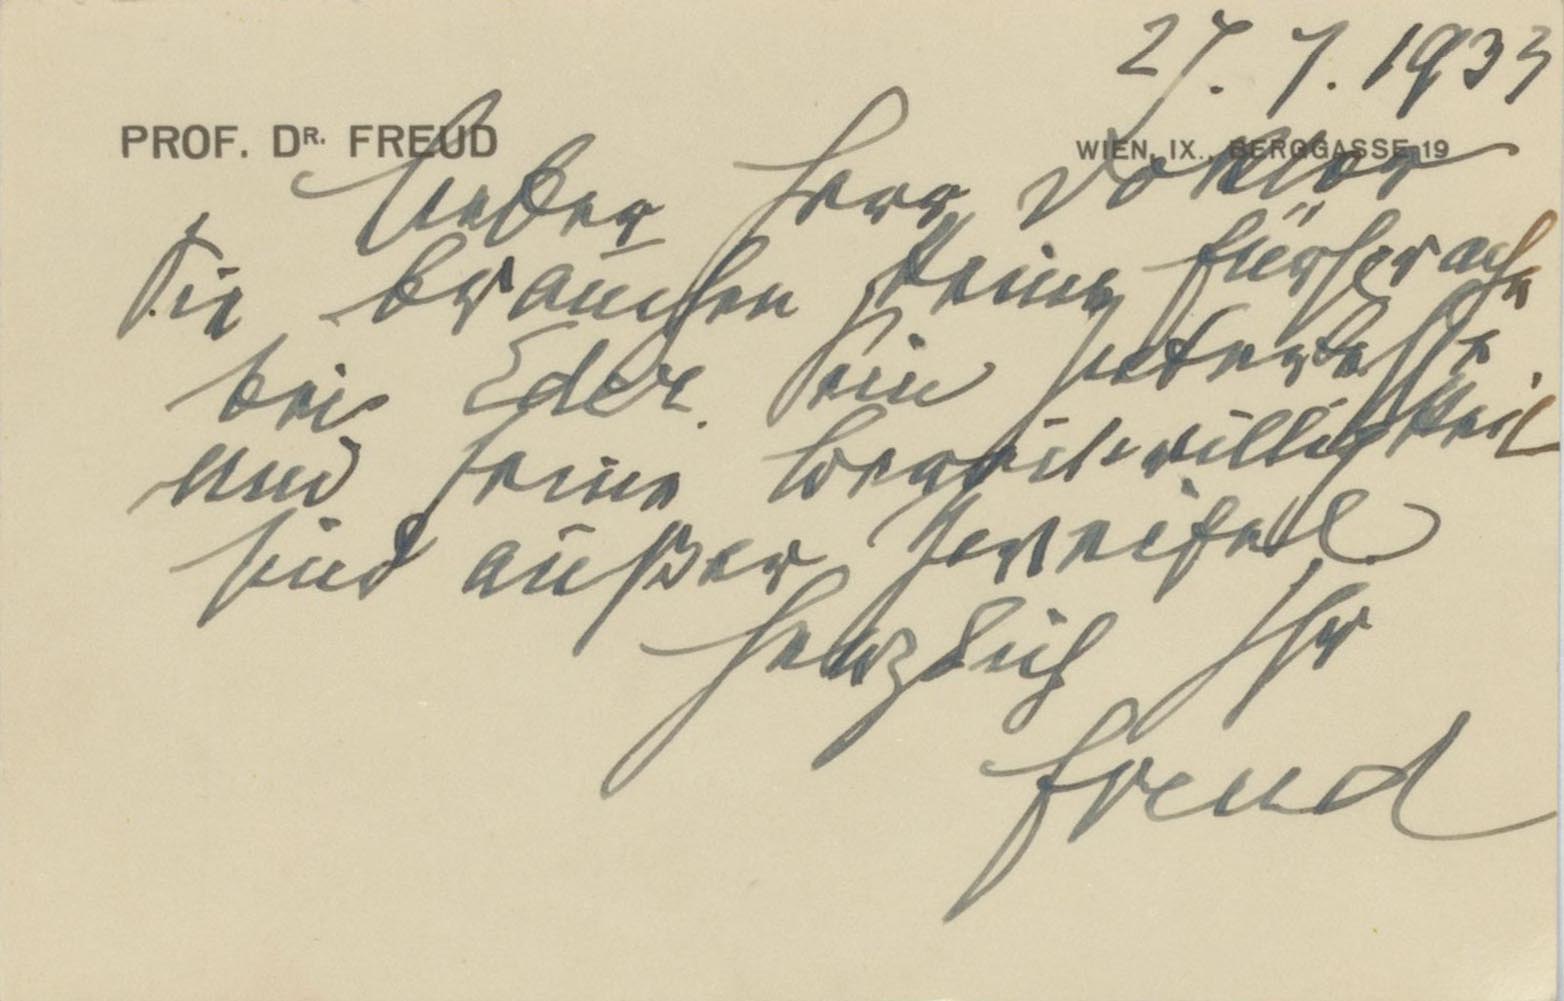 27. 7. 1933
PROF. DR. FREUD WIEN, IX., BERGGASSE 19
Lieber Herr Doktor
Sie brauchen keine Fürsprache
bei Eder. Sein Interesse
und seine Bereitwilligkeit
sind außer Zweifel
Herzlich Ihr
Freud